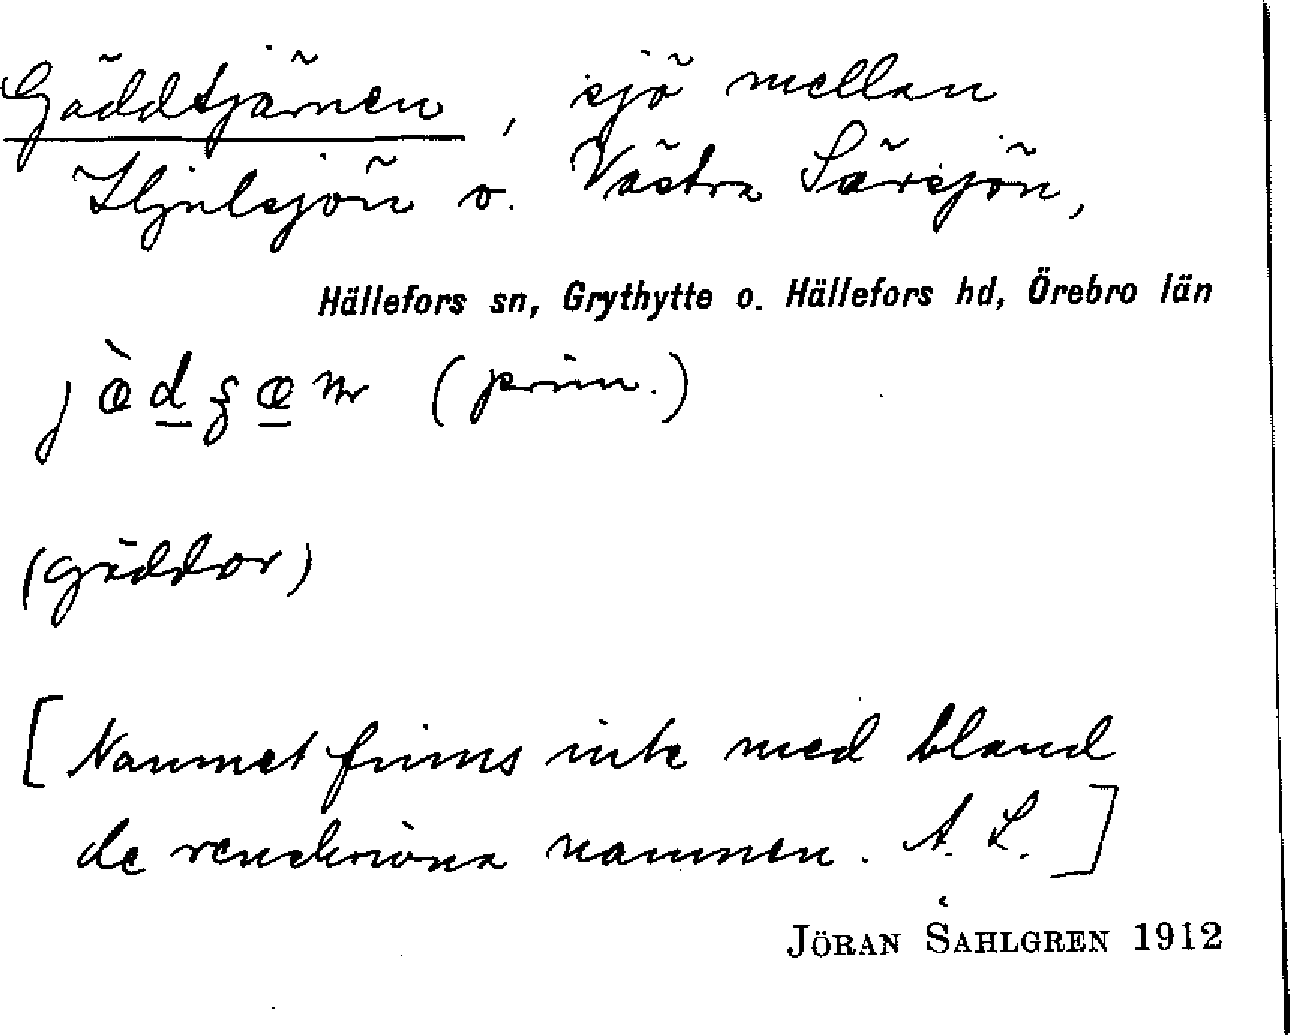 Gäddtjärnen, sjö mellan
Hjulsjön o. Västra Särsjön,
Hällefors sn, Grythytte o. Hällefors hd, Örebro län
(prim.)
(gäddor)
[Namnet finns inte med bland
de renskrivna namnen. A. L.]
JÖRAN SAHLGREN 1912